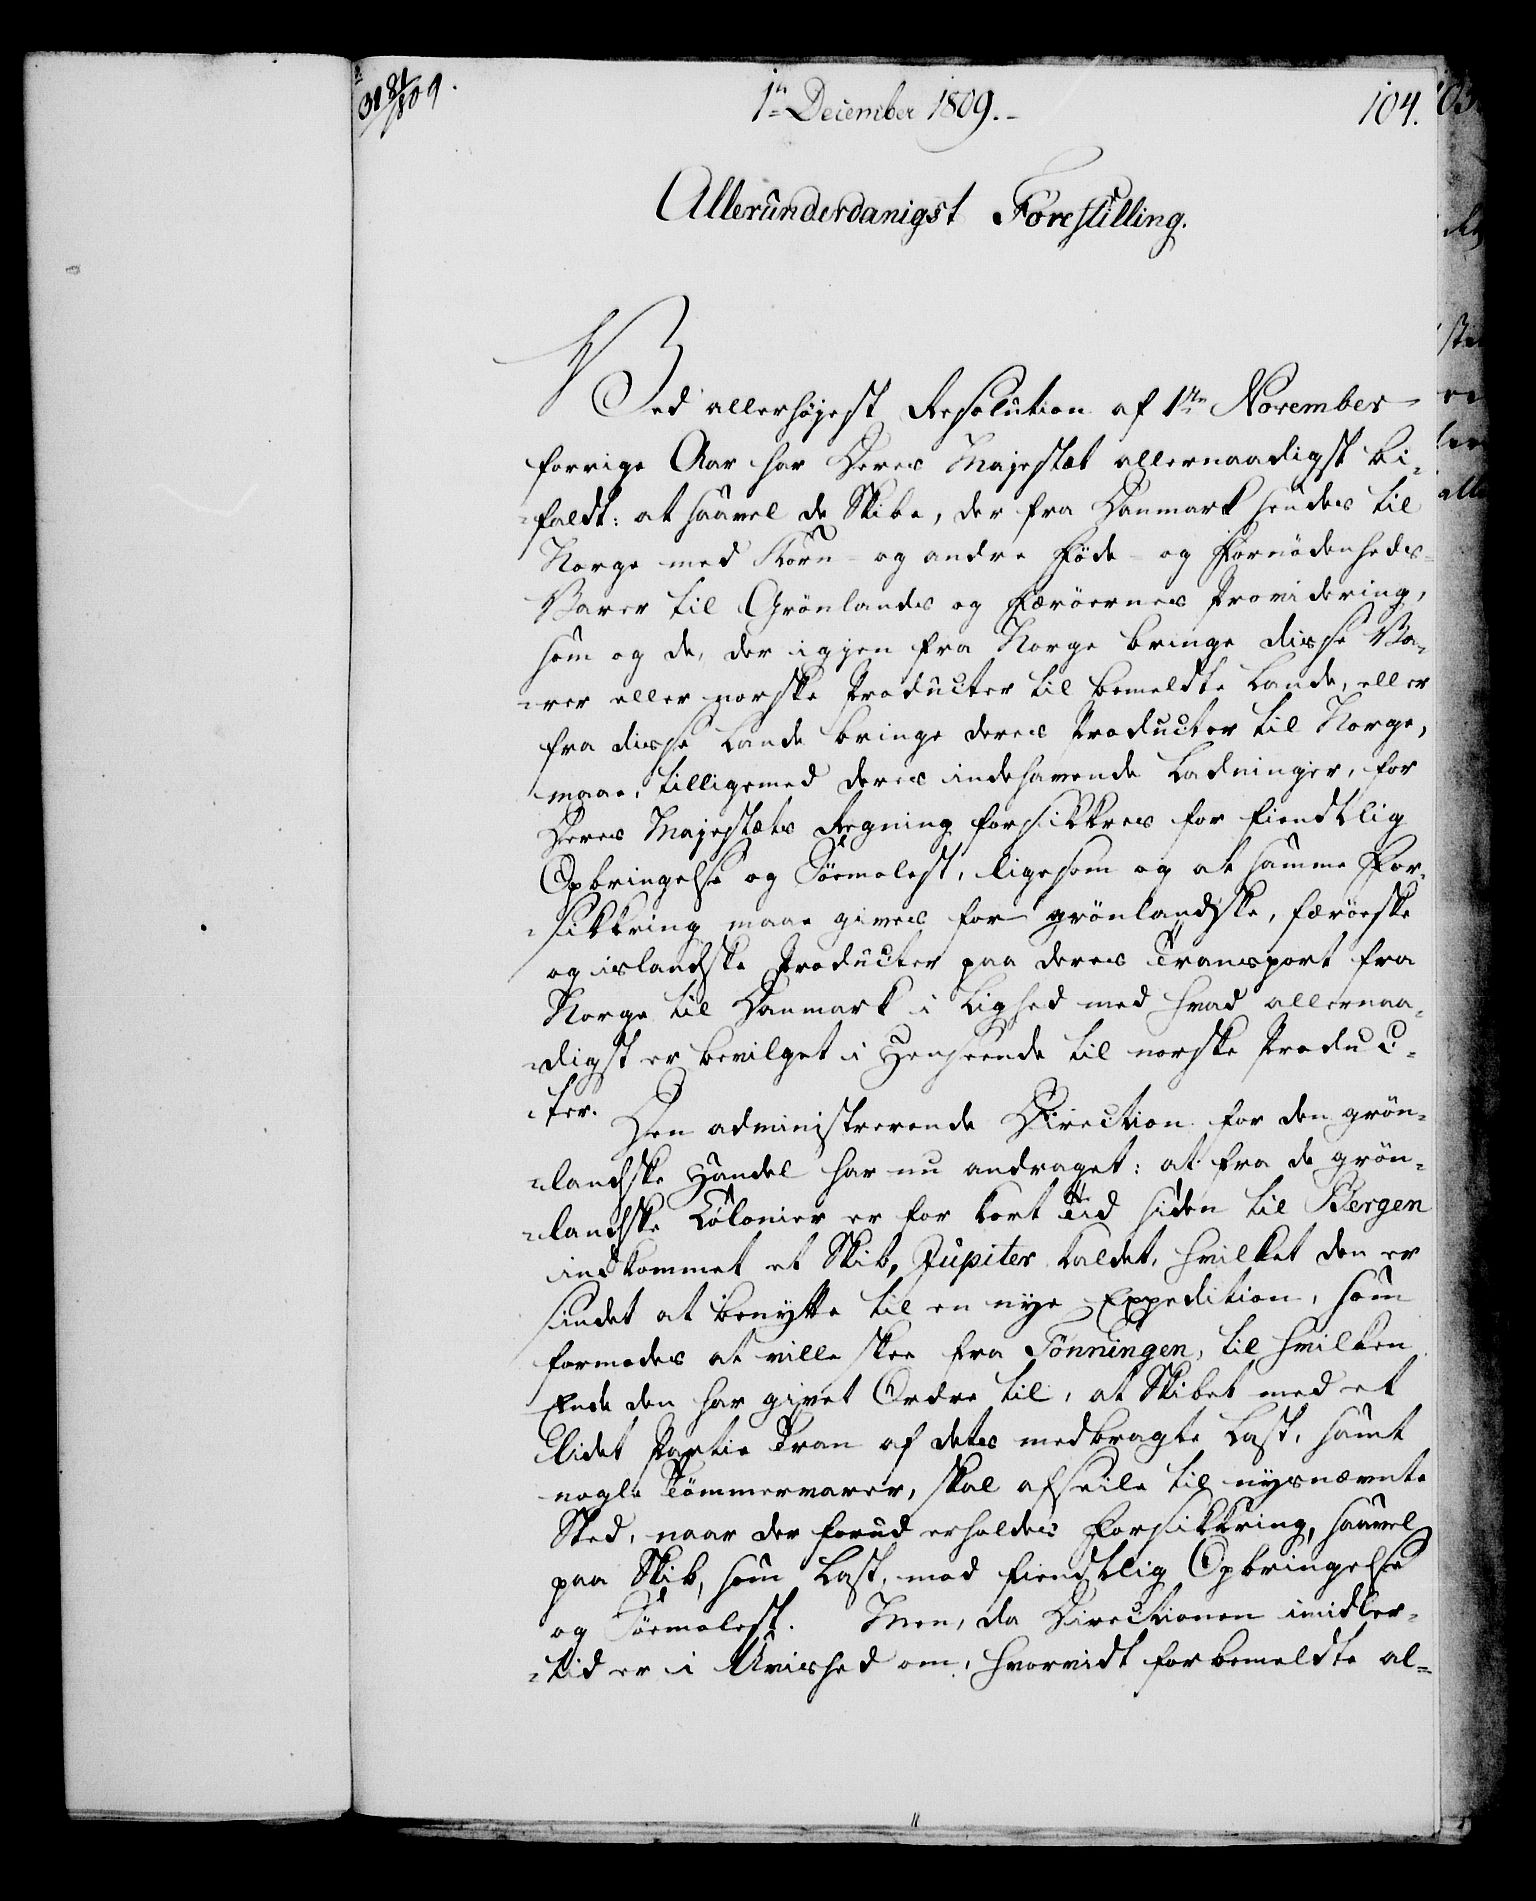 1n December 1809.-
104.
Allerunderdanigst Forestilling.
Ved allerhøjest Resolution af 1ten November
forrige Aar har Deres Majestæt allernaadigst bi-
faldt: at saavel de Skibe, der fra Danmark sendes til
Norge med Korn- og andre Føde- og Fornødenheds-
Varer til Grønlands og Færøernes Providering,
som og de, der igjen fra Norge bringe disse Va-
rer eller norske Producter til bemeldte Lande, eller
fra disse Lande bringe deres Producter til Norge,
maae, tilligemed deres indehavende Ladninger, for
Deres Majestæts Regning forsikkres for fiendtlig
Opbringelse og Søemolest, ligesom og at samme For-
sikkring maae gives for grønlandske, færøeske
og islandske Producter paa deres Transport fra
Norge til Danmark i Lighed med hvad allernaa-
digst er bevilget i Henseende til norske Produc-
ter. Den administrerende Direction for den grøn-
landske Handel har nu andraget: at fra de grøn-
landske Colonier er for kort Tid siden til Bergen
indkommet et Skib, Jupiter kaldet, hvilket den er
sindet at benytte til en nye Expedition, som
formodes at ville skee fra Tønningen, til hvilken
Ende den har givet Ordre til, at Skibet med et
lidet Partie Tran af dets medbragte Last, samt
nogle Tømmervarer, skal afseile til nysnævnte
Sted, naar der forud erholdes Forsikkring, saavel
paa Skib, som Last, mod fiendtlig Opbringelse
og Søemolest. Men, da Directionen imidler-
tid er i Uvished om, hvorvidt forbemeldte al-